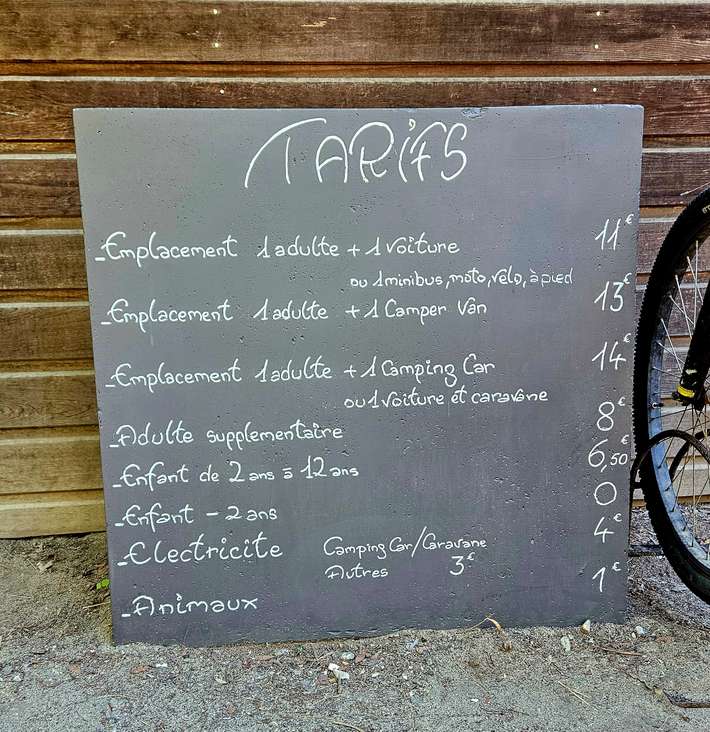 TARIFS
-Emplacement 1 adulte + 1 Voiture 11€
ou 1 minibus, moto, vélo, à pied
-Emplacement 1 adulte + 1 Camper Van 13€
-Emplacement 1 adulte + 1 Camping Car 14€
ou 1 voiture et caravane
-Adulte supplementaire 8€
-Enfant de 2 ans à 12 ans 6,50€
-Enfant - 2 ans 0
-Electricite Camping Car/Caravane 4€
Autres 3€
-Animaux 1€